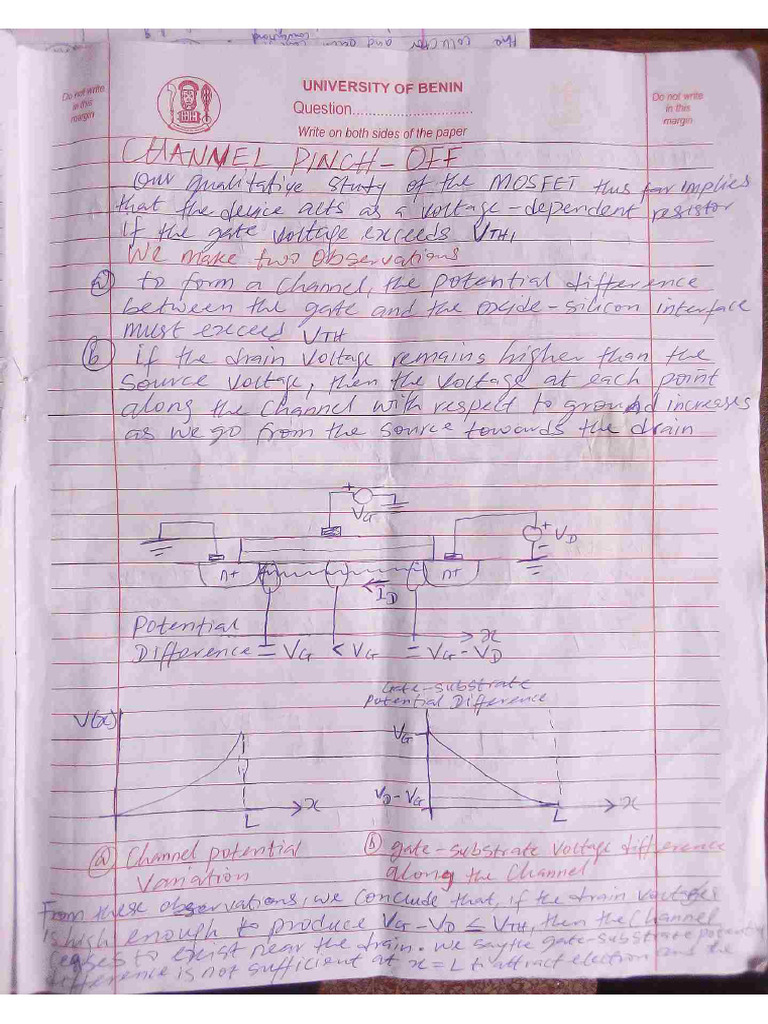 the collector and
Do not write
in this
margin
UNIVERSITY OF BENIN
Question..............................
Write on both sides of the paper
Do not write
in this
margin
CHANNEL PINCH-OFF
Our qualitative study of the MOSFET thus far implies
that the device acts as a voltage-dependent resistor
if the gate voltage exceeds VTH,
We make two observations
(a) to form a channel, the potential difference
between the gate and the oxide-silicon interface
must exceed VTH
(b) if the drain voltage remains higher than the
source voltage, then the voltage at each point
along the channel with respect to ground increases
as we go from the source towards the drain
+
VG
+
VD
n+
n+
ID
Potential
x
Difference = VG < VG = VG-VD
Gate-substrate
Potential Difference
V(x)
VG
VD-VG
x
L
x
L
(a) Channel potential
Variation
(b) gate-substrate voltage difference
along the Channel
From these observations, we conclude that, if the drain voltages
is high enough to produce VG-VD ≤ VTH, then the channel
ceases to exist near the drain. we say the gate-substrate potential
difference is not sufficient at x=L to attract electron and the